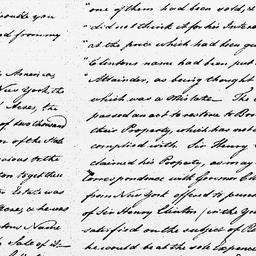 trouble you
and from my
America
New York, the
Acres, the
of two thousand
on of the State
vious to the
ton together
Estate was
tones, as he was
ntons Name
Sale of it
"one of them had been sold, a
"did not think it for his Interest
"at the price which had been
"Clintons name had been put
"Attainder, as being thought
which was a Mistake. The
passed an act to restore to
their Property, which has not
complied with. Sir Henry
claimed his Property, as may
Correspondence with Governor Cl
from New York offered to
of Sir Henry Clinton (in the
satisfied on the subject of
he would be at the sole Expence